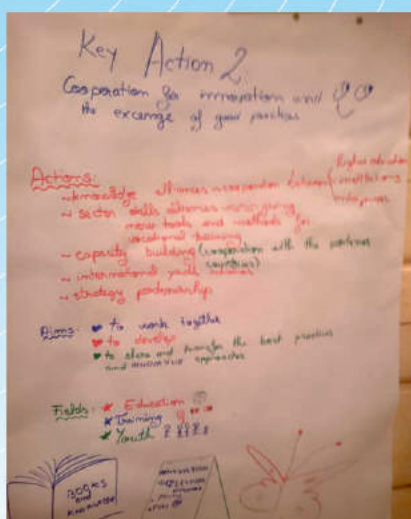 Key Action 2
Cooperation for innovation and
the excange of good practices
Actions:
~ knowledge alliances cooperation between
Higher education
institutions
enterprises
~ sector skills alliances
new tools and methods for
vocational training
~ capacity building (cooperation with the partners
countries)
~ international youth
~ strategy partnership
Aims: to work together
to develop
to share and transfer the best practices
and innovative approaches
Fields: Education
Training
Youth
BOOKS
and